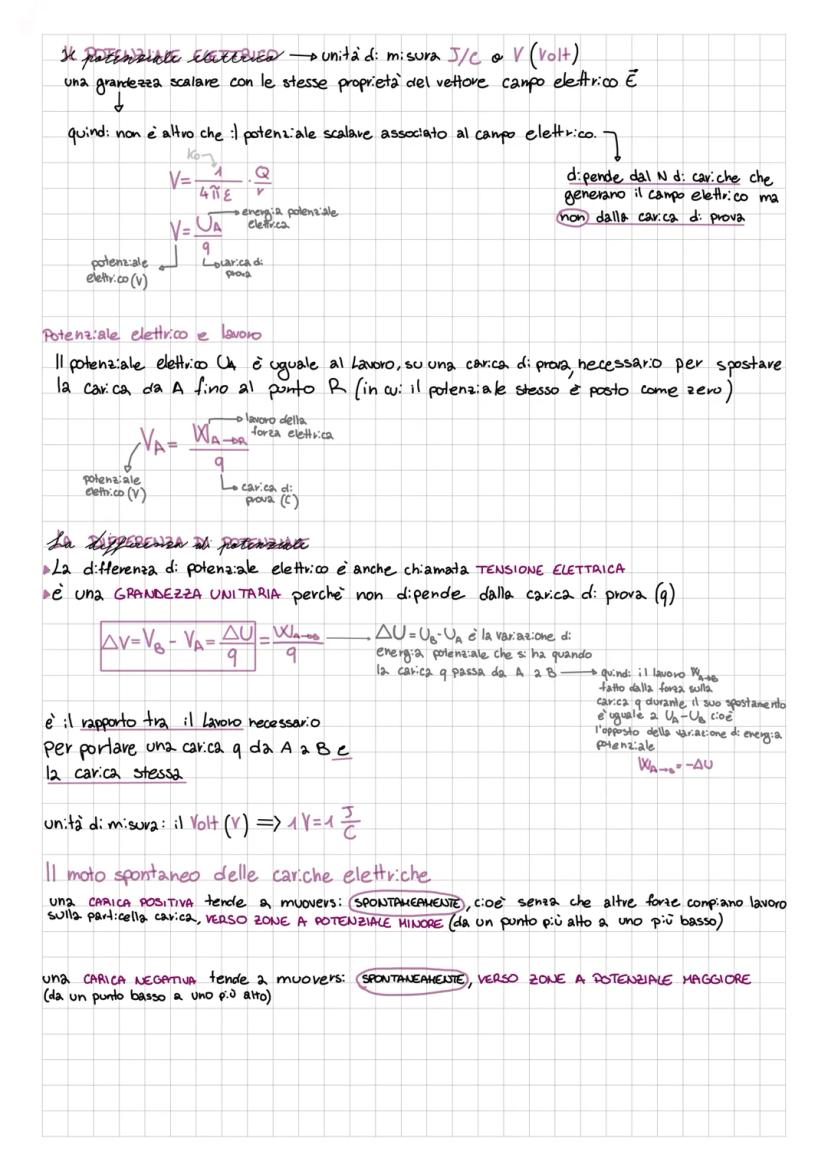 Il potenziale elettrico → unità di misura J/C o V (Volt)
una grandezza scalare con le stesse proprietà del vettore campo elettrico E⃗
quindi non è altro che il potenziale scalare associato al campo elettrico.
dipende dal N di cariche che
generano il campo elettrico ma
non dalla carica di prova
K₀
V = 1/4πε · Q/r
V = U_A/q
energia potenziale
elettrica
carica di
prova
potenziale
elettrico (V)
Potenziale elettrico e lavoro
Il potenziale elettrico U_A è uguale al Lavoro, su una carica di prova, necessario per spostare
la carica da A fino al punto R (in cui il potenziale stesso è posto come zero)
V_A = W_A→R/q
lavoro della
forza elettrica
potenziale
elettrico (V)
carica di
prova (C)
La differenza di potenziale
▸La differenza di potenziale elettrico è anche chiamata TENSIONE ELETTRICA
▸è una GRANDEZZA UNITARIA perchè non dipende dalla carica di prova (q)
ΔV = V_B - V_A = ΔU/q = W_A→B/q
ΔU = U_B - U_A è la variazione di
energia potenziale che si ha quando
la carica q passa da A a B → quindi il lavoro W_A→B
fatto dalla forza sulla
carica q durante il suo spostamento
è uguale a U_A - U_B cioè
l'opposto della variazione di energia
potenziale
W_A→B = -ΔU
è il rapporto tra il Lavoro necessario
per portare una carica q da A a B e
la carica stessa
unità di misura: il Volt (V) => 1 V = 1 J/C
Il moto spontaneo delle cariche elettriche
una CARICA POSITIVA tende a muoversi SPONTANEAMENTE, cioè senza che altre forze compiano lavoro
sulla particella carica, VERSO ZONE A POTENZIALE MINORE (da un punto più alto a uno più basso)
una CARICA NEGATIVA tende a muoversi SPONTANEAMENTE, VERSO ZONE A POTENZIALE MAGGIORE
(da un punto basso a uno più alto)